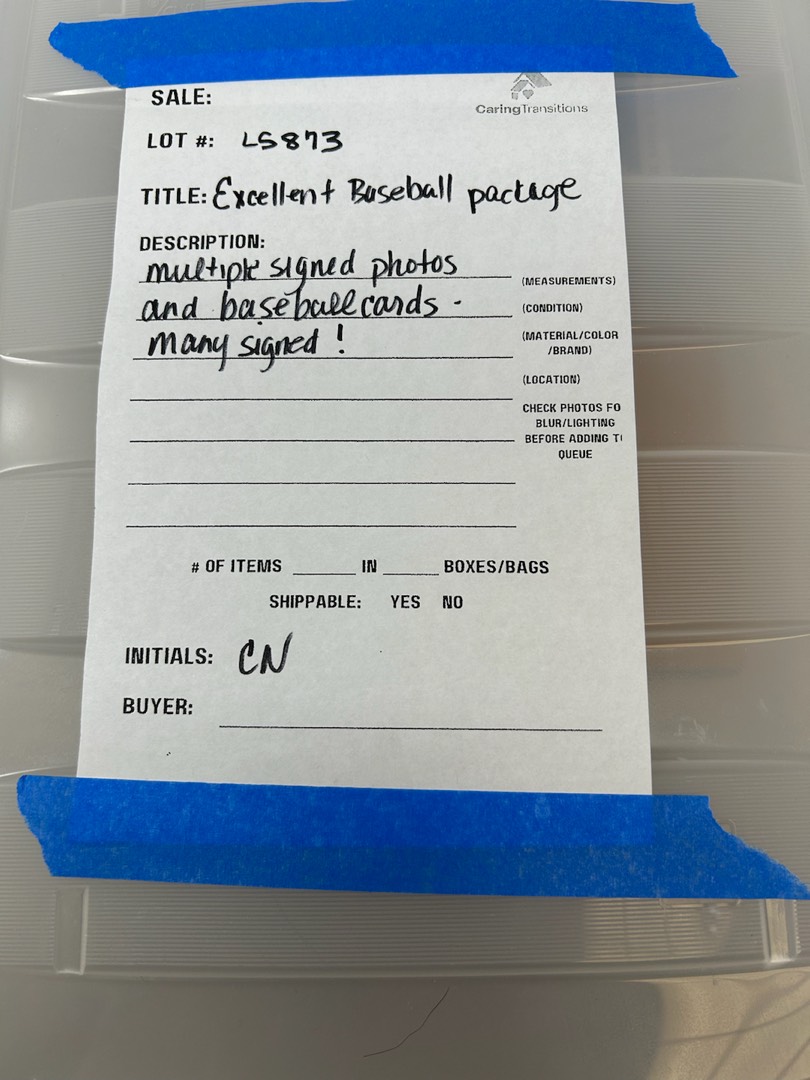 SALE:
CaringTransitions
LOT #: LS873
TITLE: Excellent Baseball package
DESCRIPTION:
multiple signed photos
(MEASUREMENTS)
and baseball cards -
(CONDITION)
many signed !
(MATERIAL/COLOR
/BRAND)
(LOCATION)
CHECK PHOTOS FO
BLUR/LIGHTING
BEFORE ADDING T
QUEUE
# OF ITEMS ______ IN ______ BOXES/BAGS
SHIPPABLE: YES NO
INITIALS: CN
BUYER: